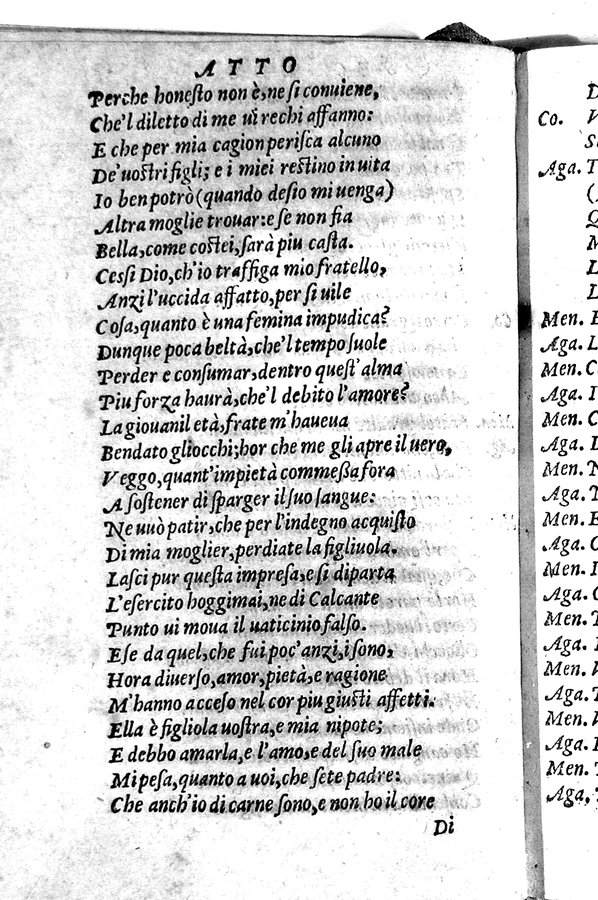 ATTO
Perche honesto non è, ne si conuiene,
Che'l diletto di me ui rechi affanno:
E che per mia cagion perisca alcuno
De' uostri figli; e i miei restino in uita
Io ben potrò (quando desio mi uenga)
Altra moglie trouar: e se non fia
Bella, come costei, sarà piu casta.
Cessi Dio, ch'io traffiga mio fratello,
Anzi l'uccida affatto, per si uile
Cosa, quanto è una femina impudica?
Dunque poca beltà, che'l tempo suole
Perder e consumar, dentro quest'alma
Piu forza haurà, che'l debito l'amore?
La giouanil età, frate m'haueua
Bendato gliocchi; hor che me gli apre il uero,
Veggo, quant'impietà commessa fora
A sostener di sparger il suo sangue:
Ne uuò patir, che per l'indegno acquisto
Di mia moglier, perdiate la figliuola.
Lasci pur questa impresa, e si diparta
L'esercito hoggimai, ne di Calcante
Punto ui moua il uaticinio falso.
E se da quel, che fui poc'anzi, i sono,
Hora diuerso, amor, pietà, e ragione
M'hanno acceso nel cor piu giusti affetti.
Ella è figliola uostra, e mia nipote;
E debbo amarla, e l'amo, e del suo male
Mi pesa, quanto a uoi, che sete padre:
Che anch'io di carne sono, e non ho il core
Di
Co.
Aga.
Men.
Aga.
Men.
Aga.
Men.
Aga.
Men.
Aga.
Men.
Aga.
Men.
Aga.
Men.
Aga.
Men.
Aga.
Men.
Aga.
Men.
Aga.